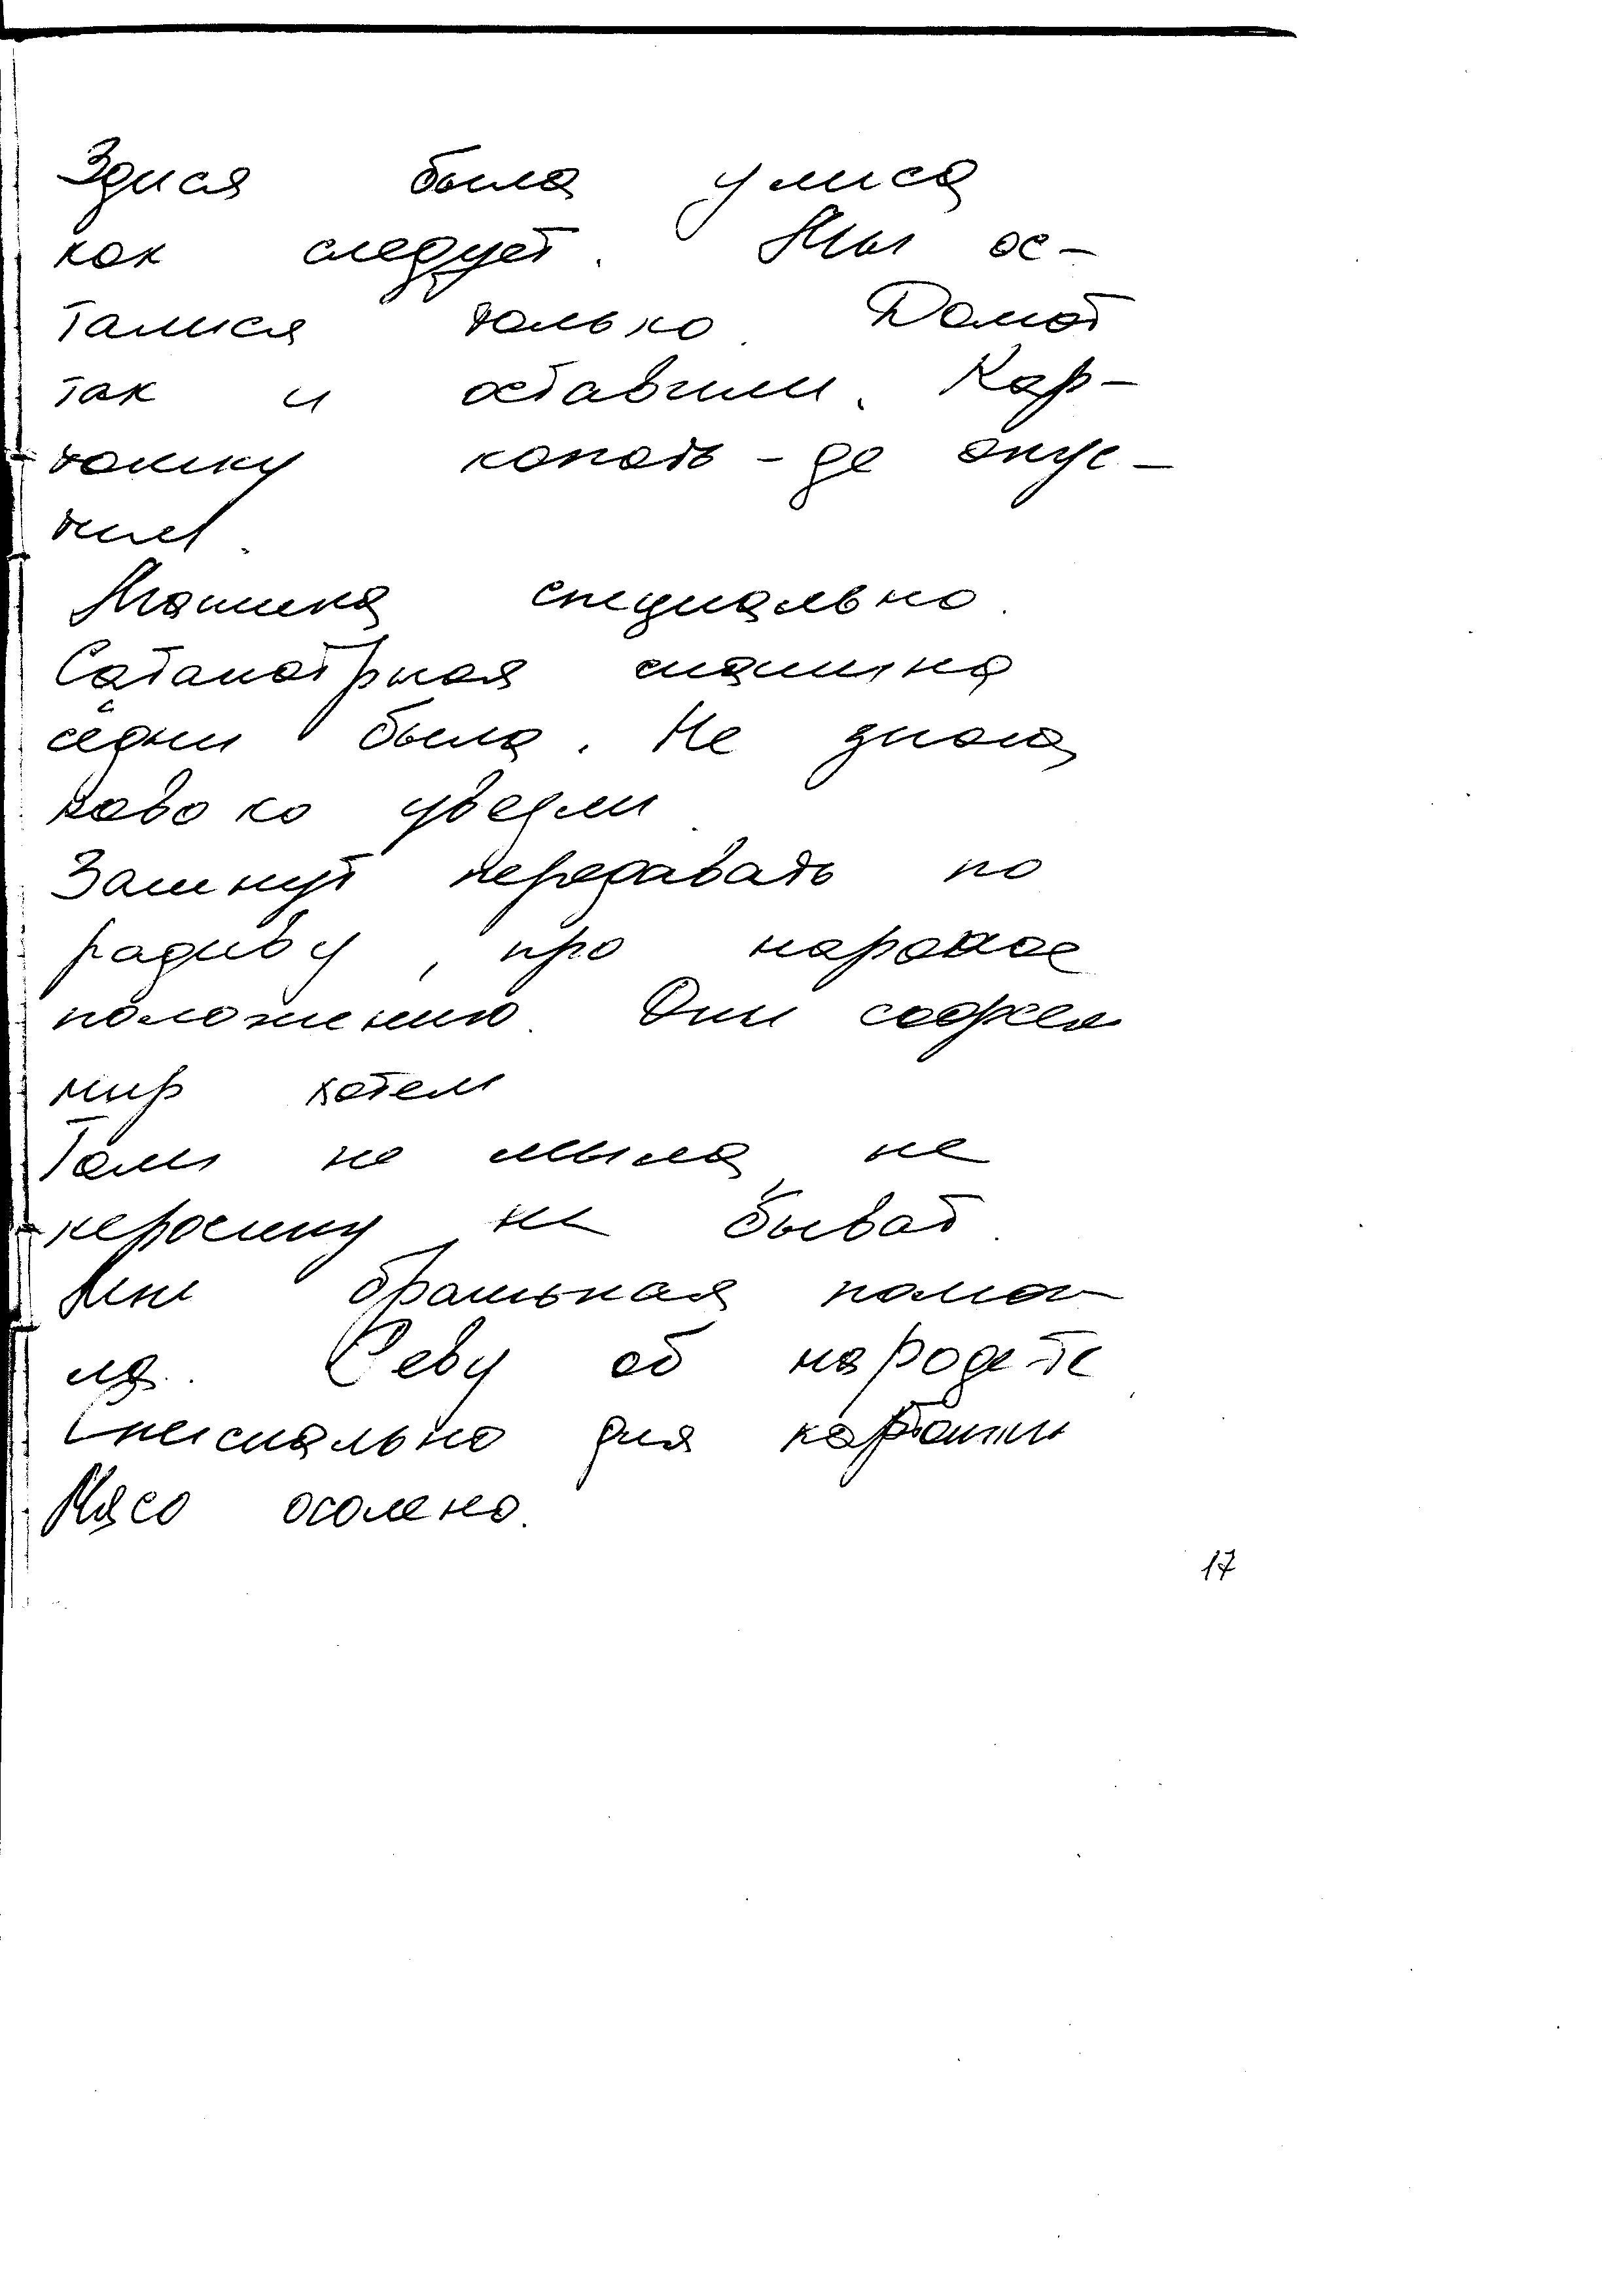 Здися была улиса
как следует. Мы ос-
талися только. Домот
так и оставили. Кар-
тошку копать-де опус-
тил.
Машина специально.
Сатанотрная машина
седни была. Не знаю
ково ко увезли.
Зачнут передавать по
радиву, про народное
положению. Они
мир хотели
Там не мыла, не
керосину не быват.
Мне братькая помог-
ла. Реву об народе-те
Специально для картошки
Мясо осолено.
17